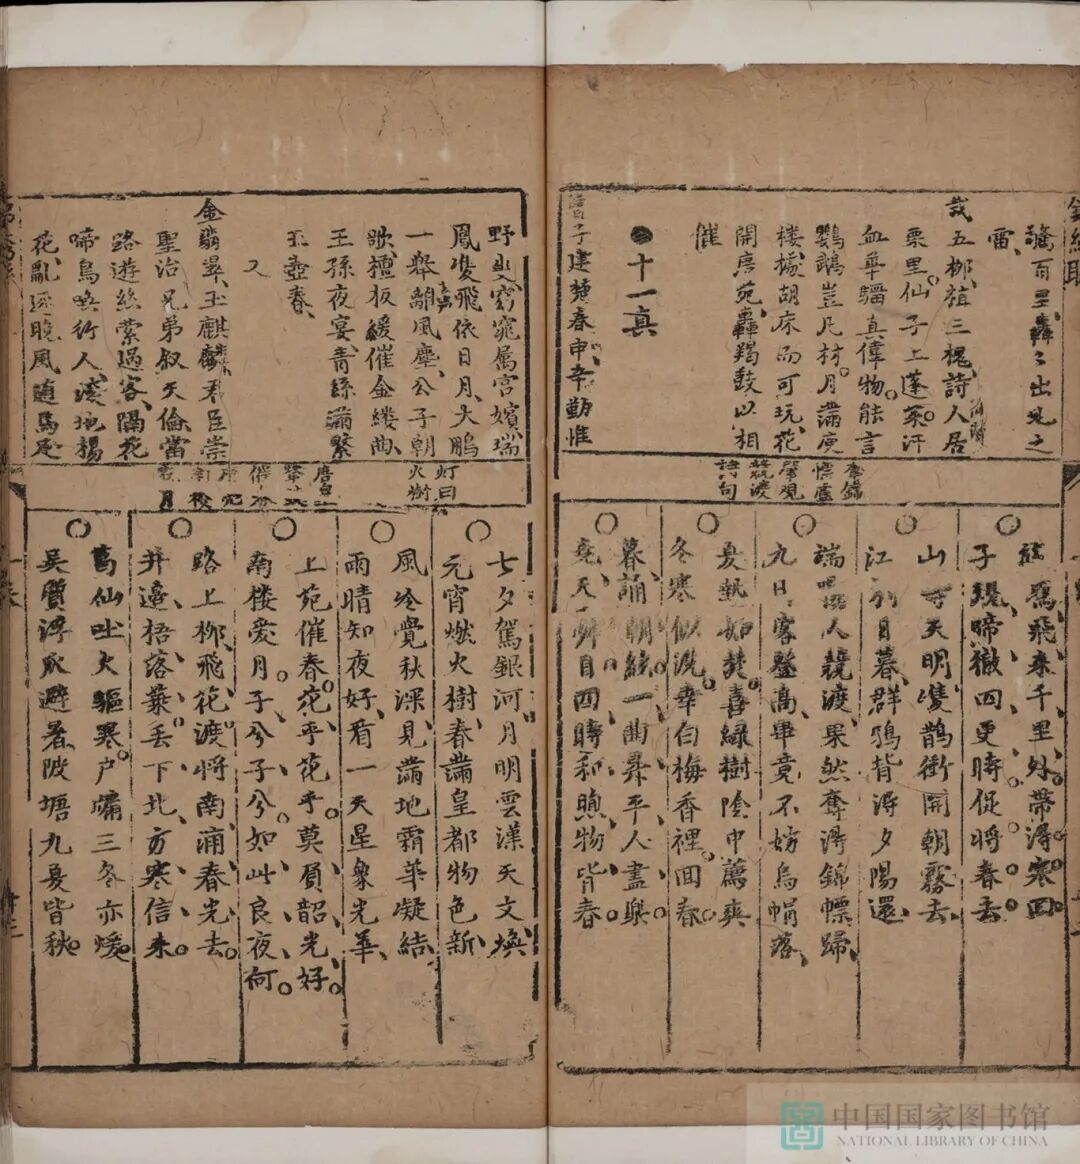 驚百里、轟〻出見之
雷、
哉五柳、植三槐、詩人居
栗里。仙子上蓬萊。汗
血華騮真偉物。能言
鸚鵡豈凡材。月滿庾
樓、據胡床而可玩、花
開唐苑、轟羯鼓以相
催
●十一真
子建楚春申、辛勤惟
奪錦
觀
句
鴈飛來千里外、帶得寒回
子規啼徹四更時。促將春去
山寺天明、隻鵲衝開朝霧去
江村日暮、群鴉背得夕陽還
端陽人競渡、果然奪得錦標歸、
九日客登高、畢竟不妨烏帽落、
夏熱如焚。喜綠樹陰中薦爽
冬寒似洗。幸白梅香裡回春
暮誦朝絃、一曲昇平人盡樂
堯天舜日、四時和煦物皆春
野叟、窈窕属宮嬪、瑞
鳳雙飛依日月、大鵬
一舉離風塵、公子朝
歌、檀板緩催金縷曲、
王孫夜宴、青絲滿繫
玉壺春、
又
金翡翠、玉麒麟、君臣崇
聖治、兄弟叙天倫、當
路遊絲縈過客、隔花
啼鳥喚行人、滚地楊
花、亂逐曉風隨馬足
灯曰
火樹
月
七夕駕銀河。月明雲漢天文、煥
元宵燃火樹、春滿皇都物色新、
風冷覺秋深、見滿地霜華凝結
雨晴知夜好、看一天星象光華、
上苑催春。花乎花乎。莫負韶光好。
南楼愛月。子兮子兮。如此良夜何。
路上柳、飛花渡將南浦春光去。
井邊梧落葉。丢下北方寒信來。
葛仙吐火驅寒。户牖三冬亦煖。
吳質浮瓜避暑、陂塘九夏皆秋。
中国国家图书馆
NATIONAL LIBRARY OF CHINA